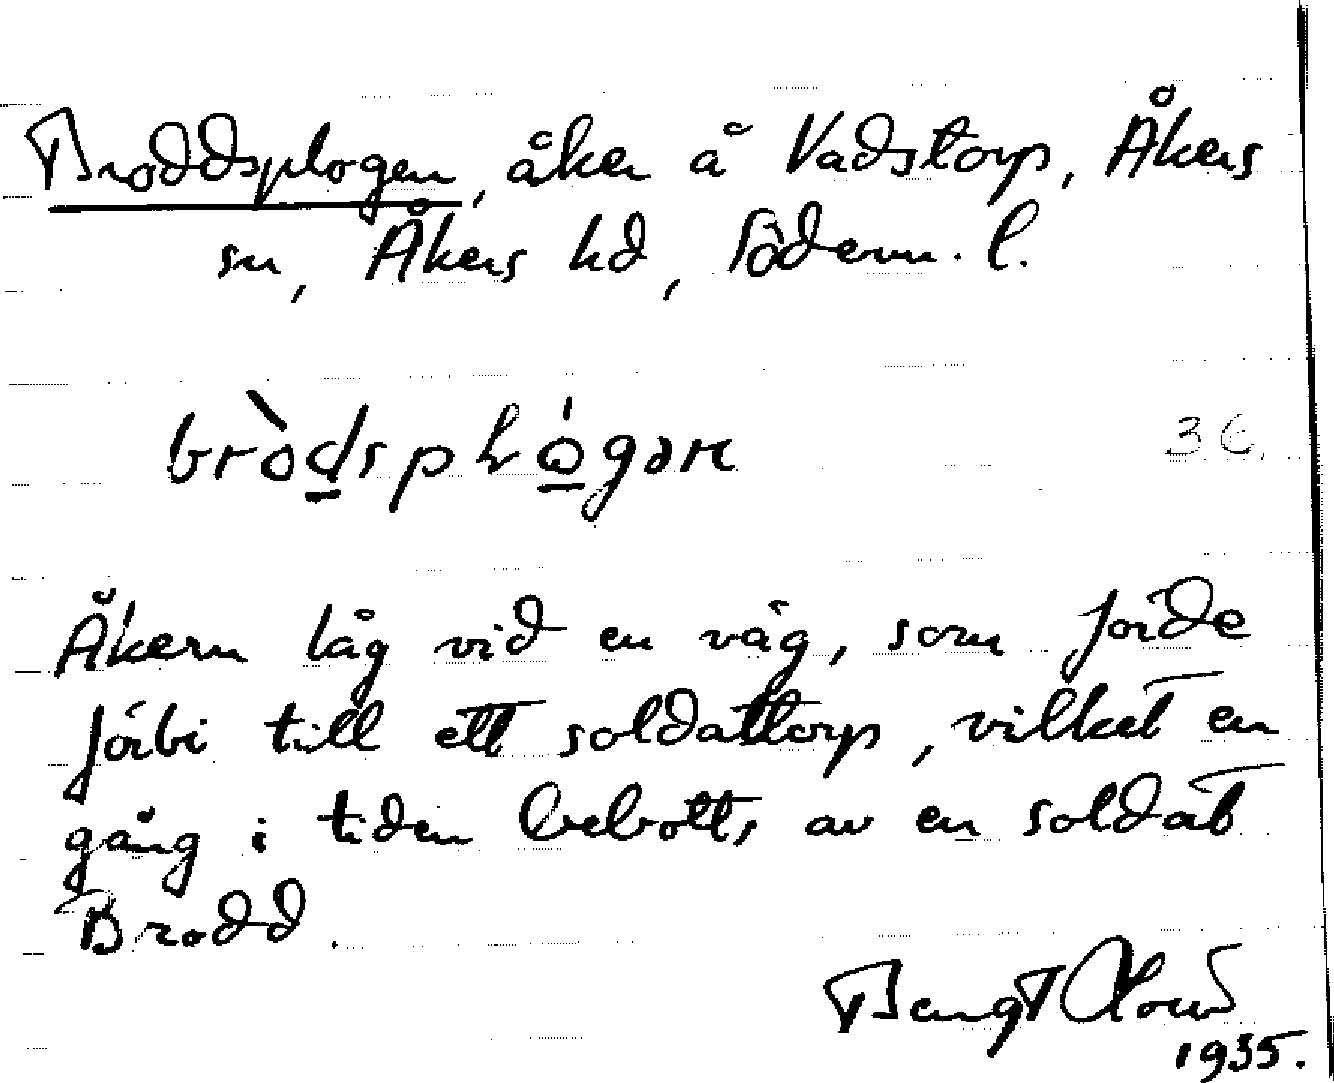 Broddsplogen, åker å Vadstorp, Åkers
sn, Åkers hd, Söderm. l.
bròdsplógən
3 E.
Åkern låg vid en väg, som förde
förbi till ett soldattorp, vilket en
gång i tiden bebotts av en soldat
Brodd.
Bengt
1935.